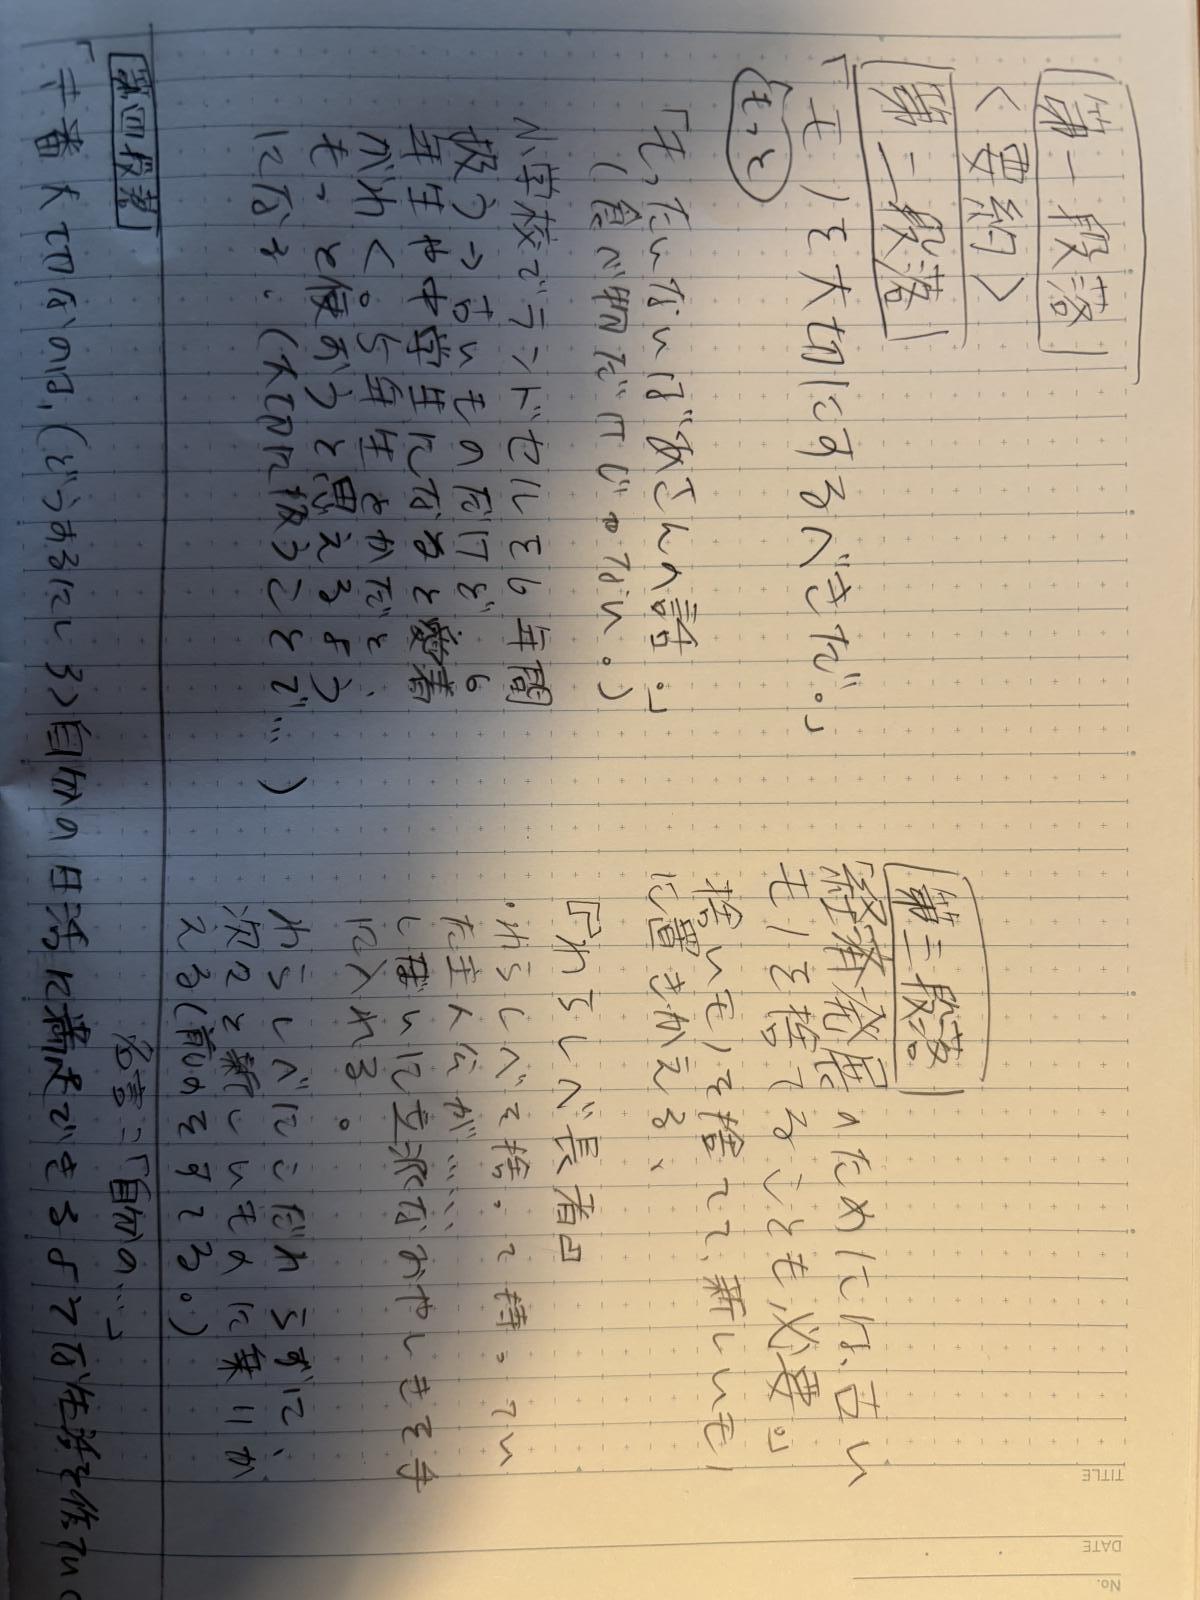 第一段落
<要約>
第二段落
「モノを大切にするべきだ。」
もっと
「もったいないばあさんの話。」
(負が明だ
ない。)
小学校でランドセルを6年間
扱う、古いものだけど、6
年生や中学生になると愛着
がわく。5年生とかだと、
もっと使おうと思えるよう
になる。(大切に扱うことで…)
第三段落
「経済発展のためには、古い
モノを捨てることも必要。」
捨いモノを捨て、新しいモノ
に置きかえる、
『わらしべ長者』
・わらしべを捨って持ってい
た主人公が……
し増いに立派なおやしきを手
に入れる。
わらしべにこだわらずに、
次々と新しいものに乗りか
える(前のをすてる。)
第四段落
名言:「自分の…」
「一番大切なのは、(どうあるにしろ)自分の日活に満足できるようて名生活を作ていく
TITLE
DATE
No.